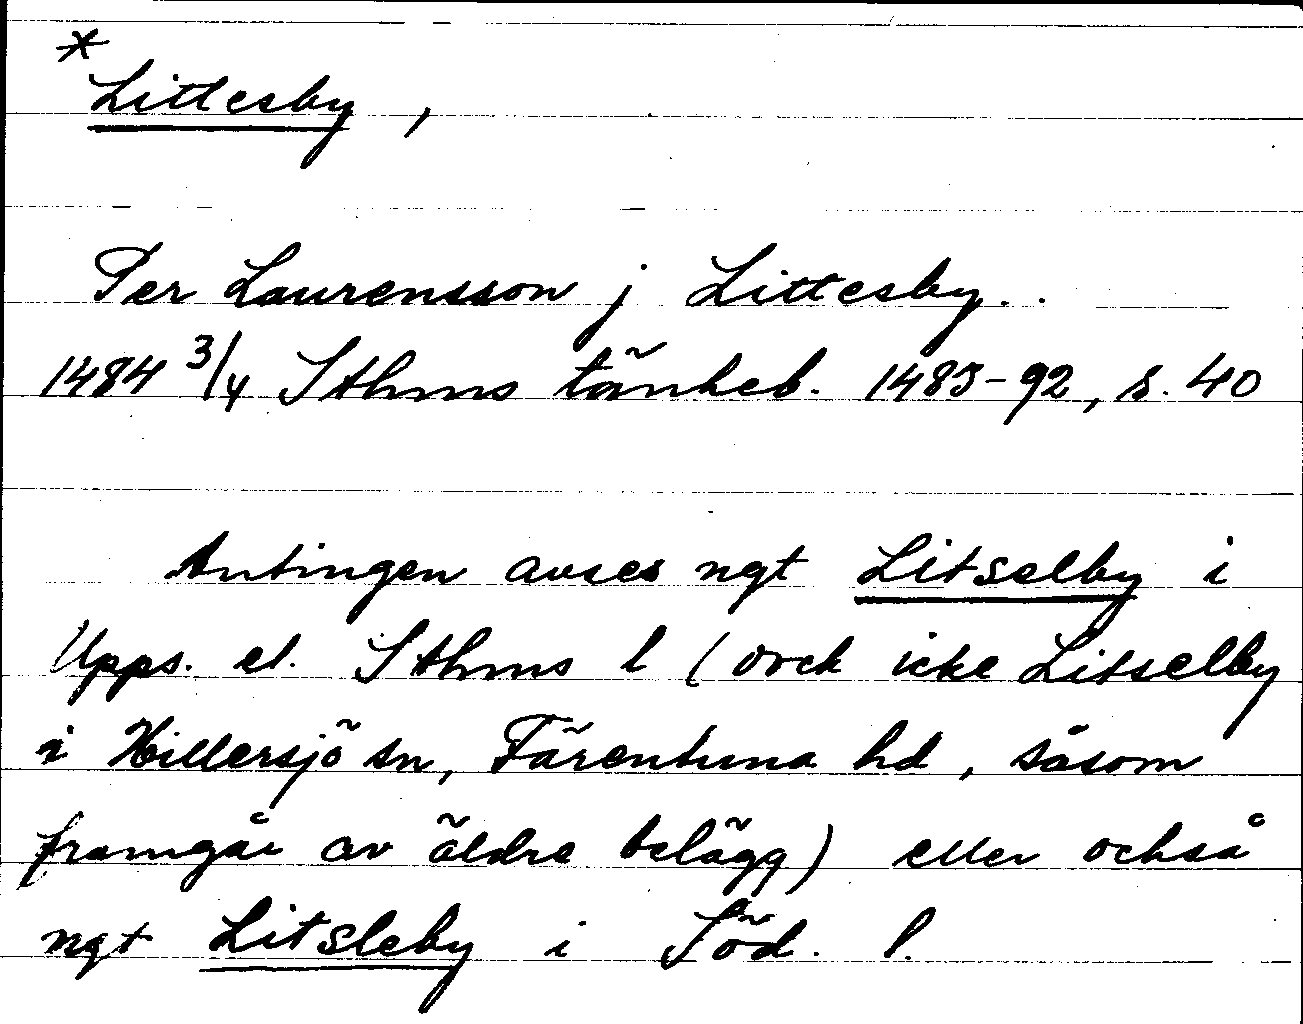 *
Littesby,
Per Laurensson j Littesby..
1484 3/4 Sthms tänkeb. 1483-92, s. 40
Antingen avses ngt Litselby i
Upps. el. Sthms l (dock icke Litselby
i Hillersjö sn, Färentuna hd, såsom
framgår av äldre belägg) eller också
ngt Litsleby i Söd. l.